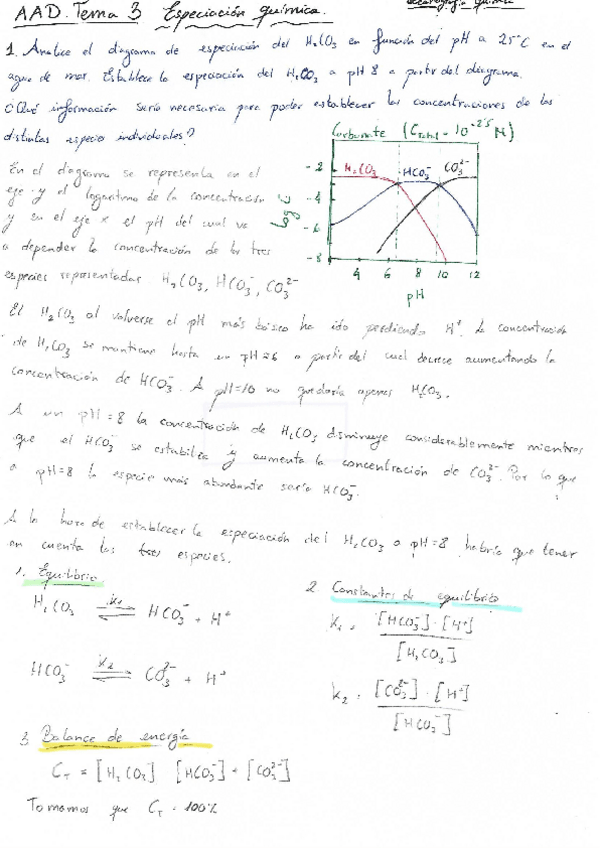 AAD. Tema 3 Especiación química.
Oceanografía Química
1. Analice el diagrama de especiación del H₂CO₃ en función del pH a 25°C en el
agua de mar. Establece la especiación del H₂CO₃ a pH 8 a partir del diagrama.
¿Qué información sería necesaria para poder establecer las concentraciones de las
distintas especies individuales?
Carbonate (C_Total = 10^-2'5 M)
En el diagrama se representa en el
eje y el logaritmo de la concentración
y en el eje x el pH del cual va
a depender la concentración de las tres
especies representadas H₂CO₃, HCO₃⁻, CO₃²⁻
H₂CO₃ HCO₃⁻ CO₃²⁻
log c
-2
-4
-6
-8
4 6 8 10 12
pH
El H₂CO₃ al volverse el pH más básico ha ido perdiendo H⁺. La concentración
de H₂CO₃ se mantiene hasta un pH=6 a partir del cual decrece aumentando la
concentración de HCO₃⁻. A pH=10 no quedaría apenas H₂CO₃.
A un pH=8 la concentración de H₂CO₃ disminuye considerablemente mientras
que el HCO₃⁻ se estabiliza y aumenta la concentración de CO₃²⁻. Por lo que
a pH=8 la especie más abundante sería HCO₃⁻.
A la hora de establecer la especiación del H₂CO₃ a pH=8 habría que tener
en cuenta las tres especies.
1. Equilibrio
H₂CO₃ ⇌ K₁ HCO₃⁻ + H⁺
HCO₃⁻ ⇌ K₂ CO₃²⁻ + H⁺
2 Constantes de equilibrio
K₁ = [HCO₃⁻]·[H⁺] / [H₂CO₃]
K₂ = [CO₃²⁻]·[H⁺] / [HCO₃⁻]
3 Balance de energía
C_T = [H₂CO₃] [HCO₃⁻] + [CO₃²⁻]
Tomamos que C_T = 100%